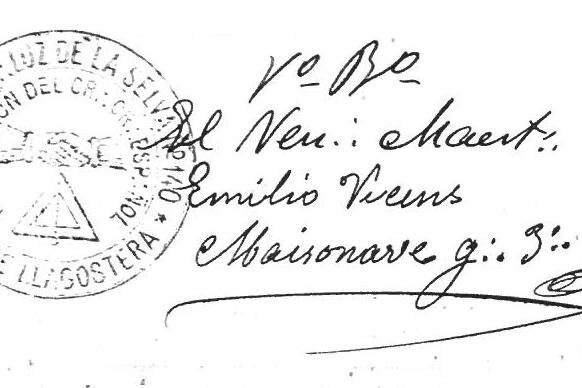 LUZ DE LA SELVA
DEL GR∴ OR∴ ESPAÑOL
LLAGOSTERA *
Vº Bº
El Ven∴ Maest∴
Emilio Vicens
Maisonave g∴ 3∴